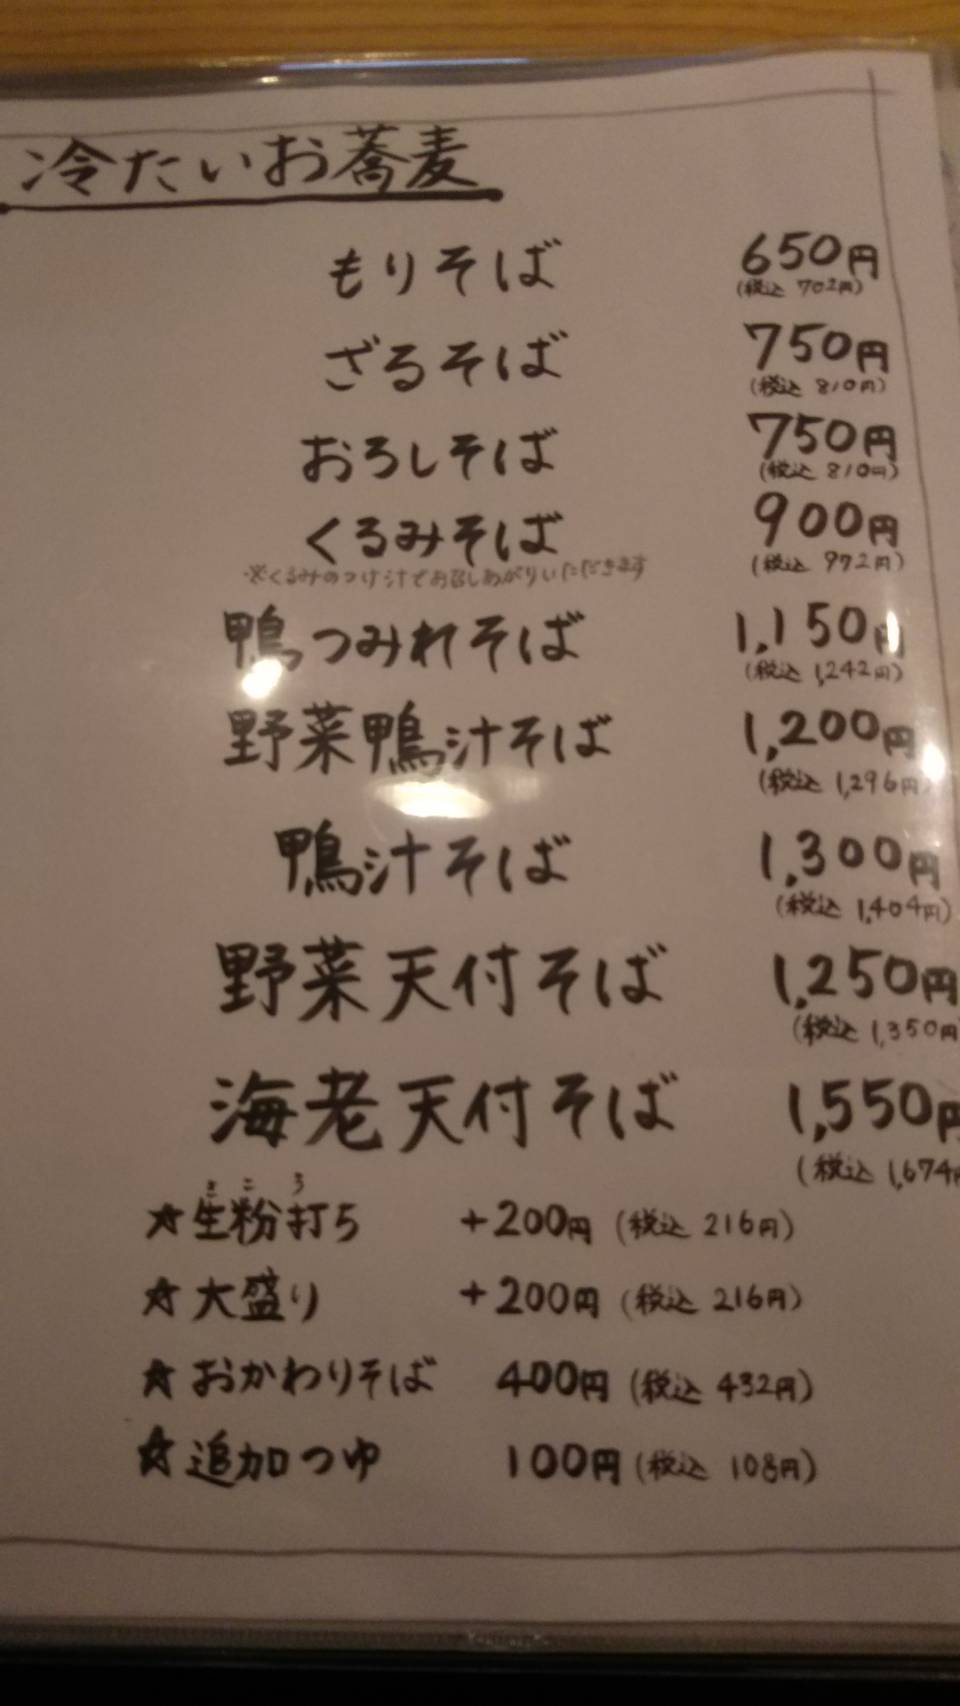 冷たいお蕎麦
もりそば 650円
(税込 702円)
ざるそば 750円
(税込 810円)
おろしそば 750円
(税込 810円)
くるみそば 900円
※くるみのつけ汁でお召しあがりいただきます
(税込 972円)
鴨つみれそば 1,150円
(税込 1,242円)
野菜鴨汁そば 1,200円
(税込 1,296円)
鴨汁そば 1,300円
(税込 1,404円)
野菜天付そば 1,250円
(税込 1,350円
海老天付そば 1,550円
(税込 1,674円
きこう
☆生粉打ち +200円 (税込 216円)
☆大盛り +200円 (税込 216円)
☆おかわりそば 400円 (税込 432円)
☆追加つゆ 100円 (税込 108円)